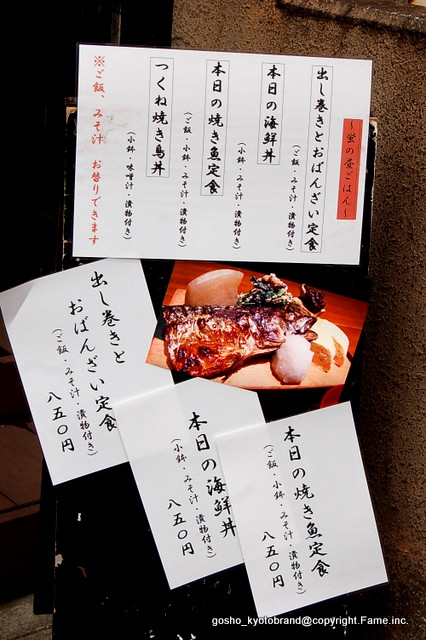 ～蛍の昼ごはん～
出し巻きとおばんざい定食
(ご飯・みそ汁・漬物付き)
本日の海鮮丼
(小鉢・みそ汁・漬物付き)
本日の焼き魚定食
(ご飯・小鉢・みそ汁・漬物付き)
つくね焼き鳥丼
(小鉢・味噌汁・漬物付き)
※ご飯、みそ汁 お替りできます
出し巻きと
おばんざい定食
(ご飯・みそ汁・漬物付き)
八五〇円
本日の海鮮丼
(小鉢・みそ汁・漬物付き)
八五〇円
本日の焼き魚定食
(ご飯・小鉢・みそ汁・漬物付き)
八五〇円
gosho_kyotobrand@copyright.Fame.inc.